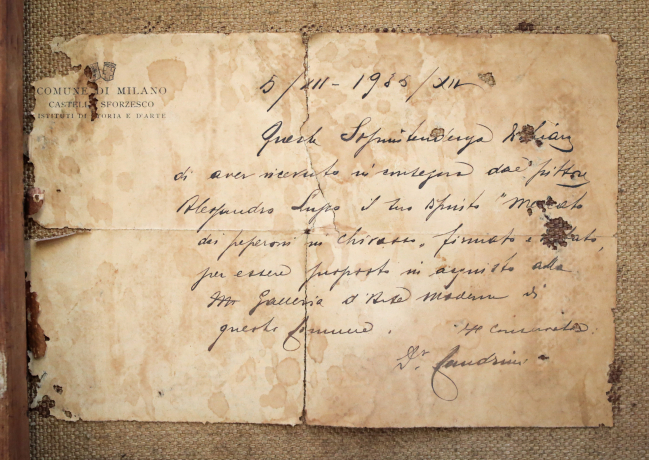 COMUNE DI MILANO
CASTELLO SFORZESCO
ISTITUTI DI STORIA E D'ARTE
5/XII - 1935/XIV
Questa Soprintendenza
di aver ricevuto in consegna dal pittore
Alessandro Lupo il suo dipinto "Mercato
dei peperoni in Chivasso" firmato e
per essere proposto in acquisto alla
Galleria d'Arte Moderna di
questo Comune.
Dr.